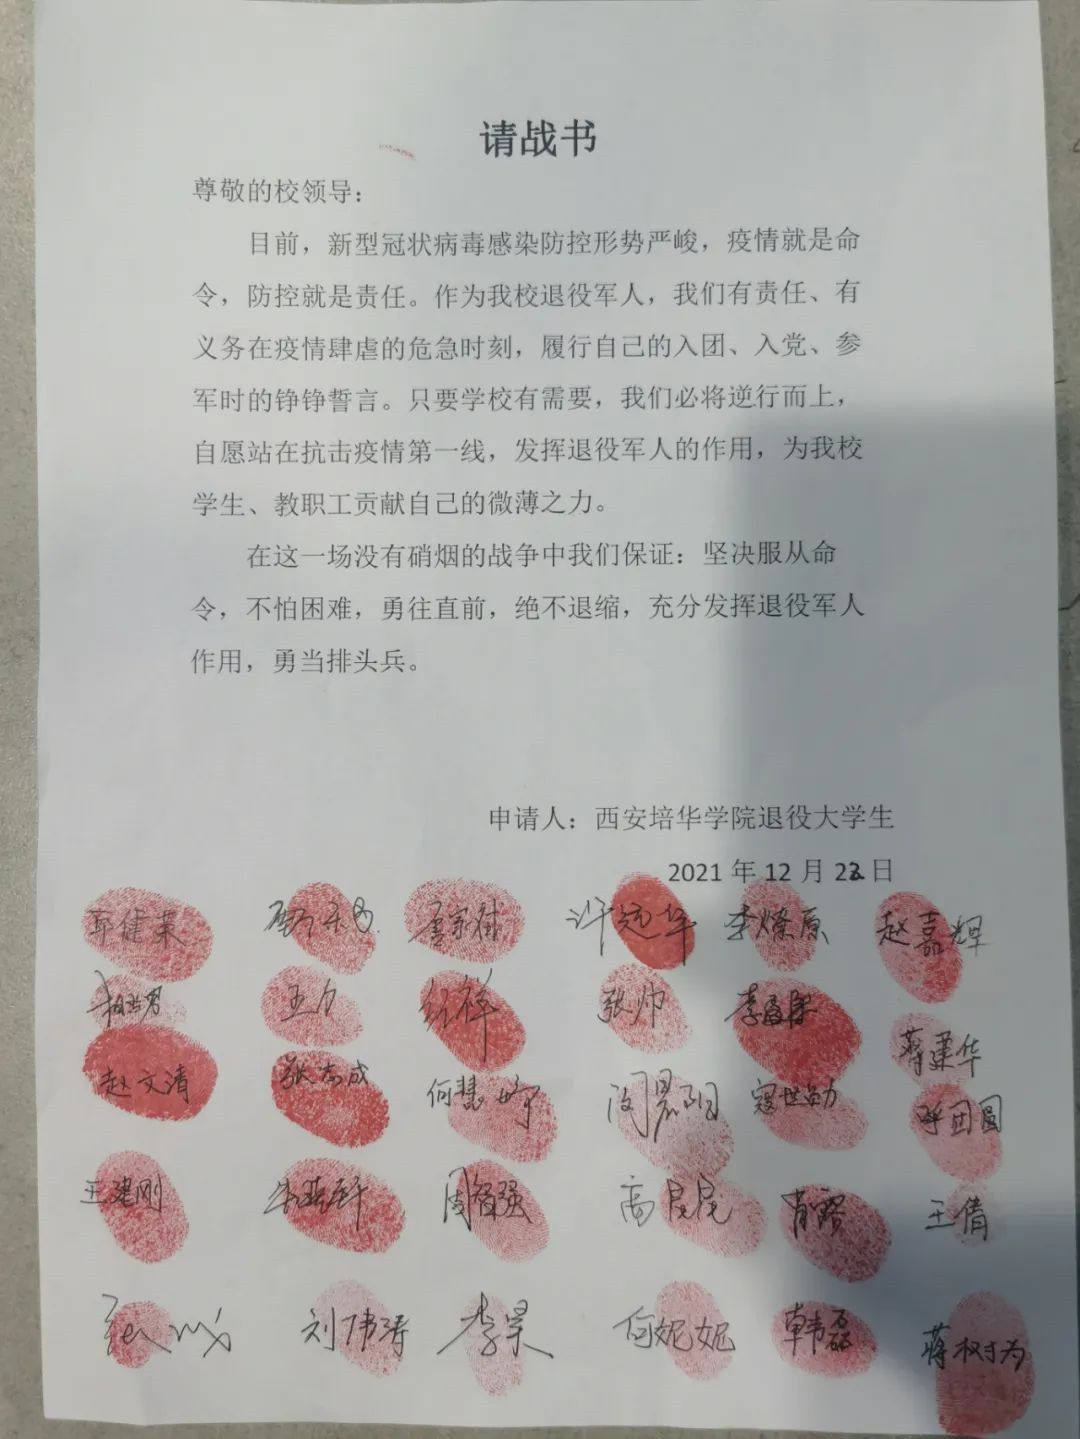 请战书
尊敬的校领导：
目前，新型冠状病毒感染防控形势严峻，疫情就是命
令，防控就是责任。作为我校退役军人，我们有责任、有
义务在疫情肆虐的危急时刻，履行自己的入团、入党、参
军时的铮铮誓言。只要学校有需要，我们必将逆行而上，
自愿站在抗击疫情第一线，发挥退役军人的作用，为我校
学生、教职工贡献自己的微薄之力。
在这一场没有硝烟的战争中我们保证：坚决服从命
令，不怕困难，勇往直前，绝不退缩，充分发挥退役军人
作用，勇当排头兵。
申请人：西安培华学院退役大学生
2021 年 12 月 22 日
许远华 李燎原 赵嘉辉
王力 张帅 蒋建华
赵文清 张志成 何慧婷 寇世勋 呼团圆
王建刚 周智强 高昆昆 肖露 王倩
刘伟涛 李杲 何妮妮 韩磊 蒋树为